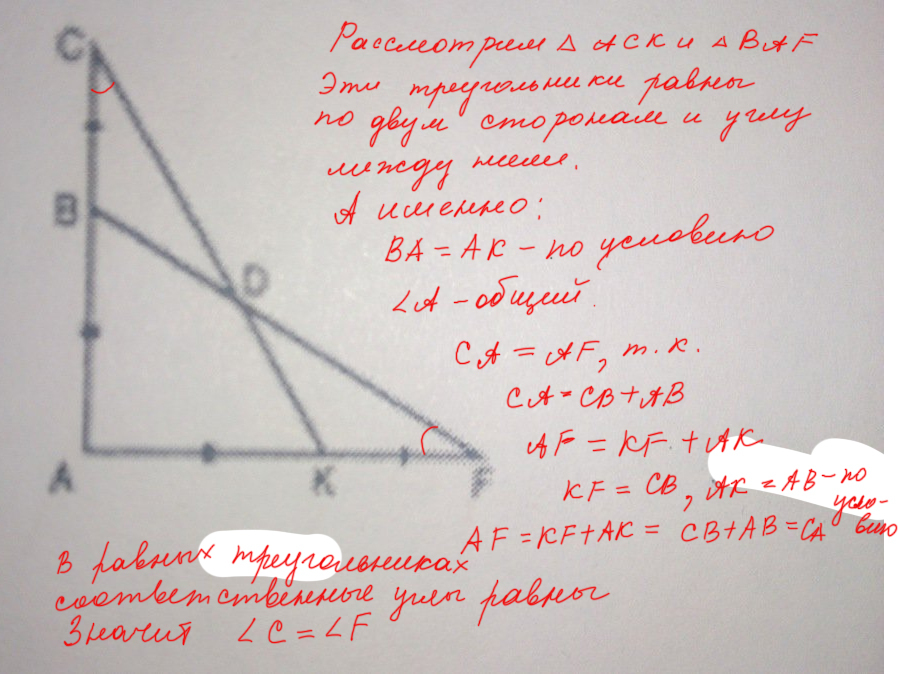 C
B
D
A
K
F
Рассмотрим △ ACK и △ BAF
Эти треугольники равны
по двум сторонам и углу
между ними.
А именно:
BA = AK - по условию
∠A - общий.
CA = AF, т.к.
CA = CB + AB
AF = KF + AK
KF = CB, AK = AB - по усло-
вию
AF = KF + AK = CB + AB = CA
В равных треугольниках
соответственные углы равны
Значит ∠C = ∠F